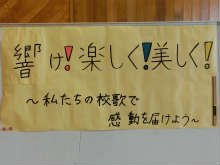 響け!楽しく!美しく!
~私たちの校歌で
感動を届けよう~